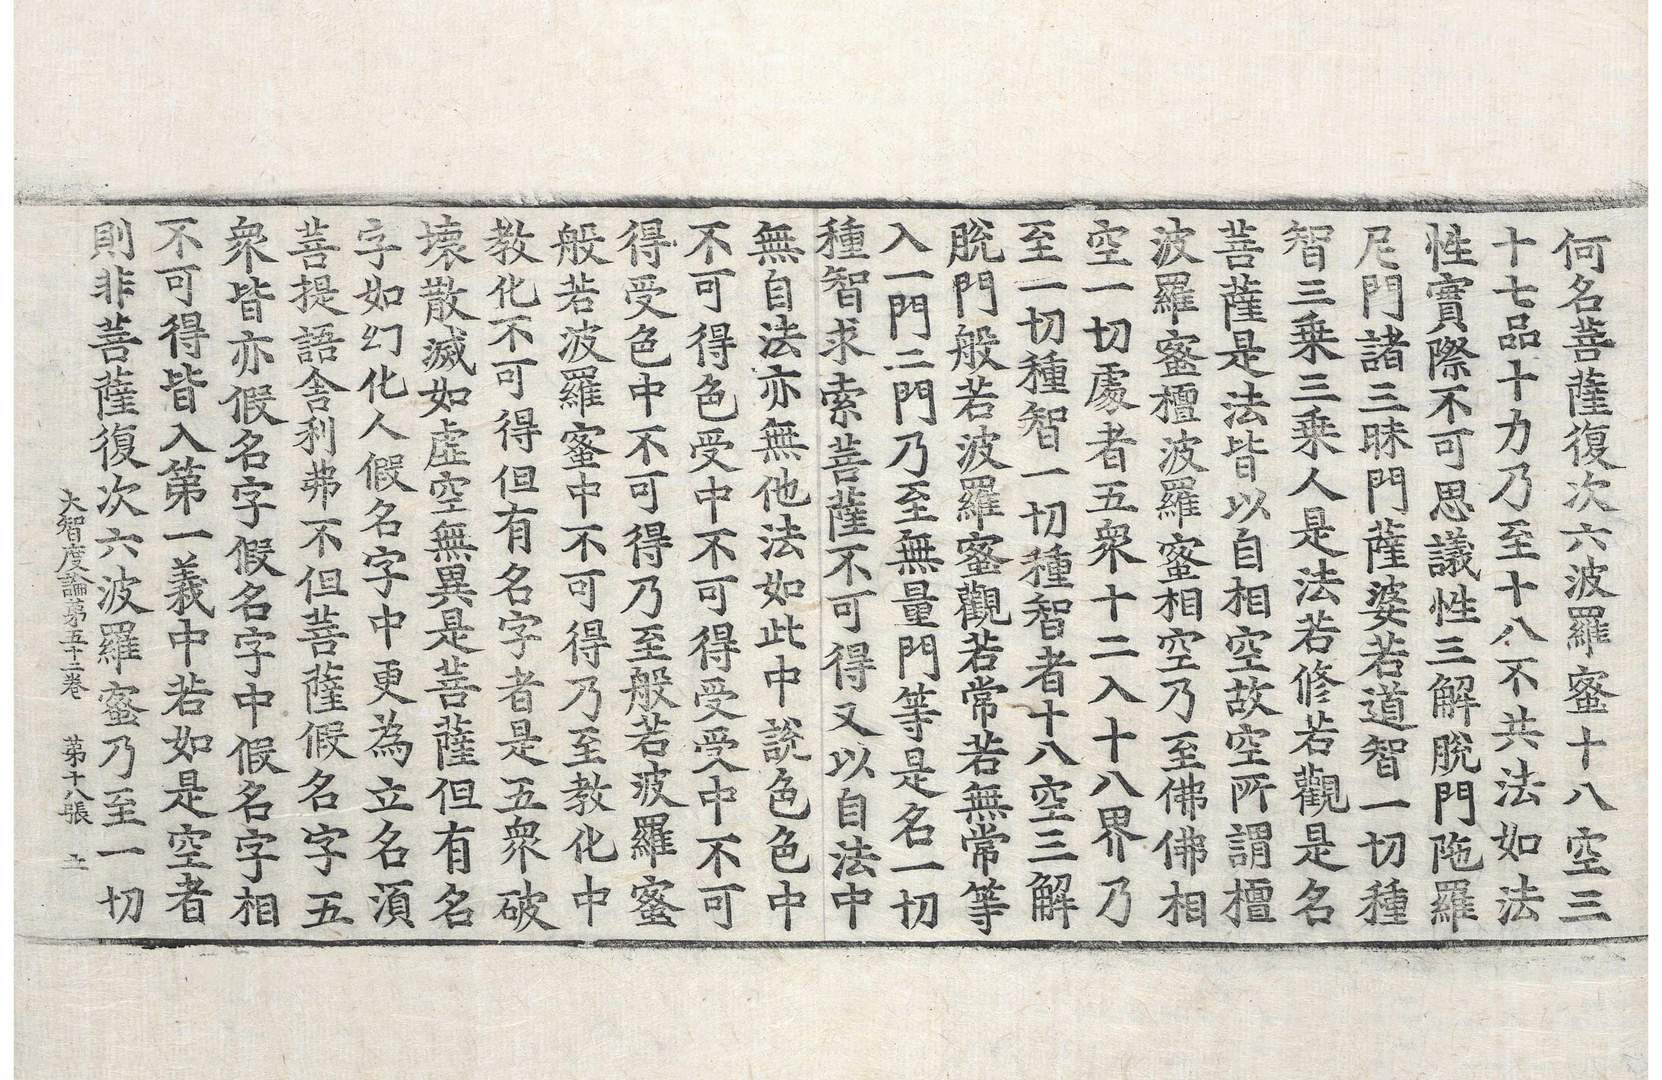 何名菩薩復次六波羅蜜十八空三
十七品十力乃至十八不共法如法
性實際不可思議性三解脫門陁羅
尼門諸三昧門薩婆若道智一切種
智三乗三乗人是法若修若觀是名
菩薩是法皆以自相空故空所謂檀
波羅蜜檀波羅蜜相空乃至佛佛相
空一切處者五衆十二入十八界乃
至一切種智一切種智者十八空三解
脫門般若波羅蜜觀若常若無常等
入一門二門乃至無量門等是名一切
種智求索菩薩不可得又以自法中
無自法亦無他法如此中說色色中
不可得色受中不可得受受中不可
得受色中不可得乃至般若波羅蜜
般若波羅蜜中不可得乃至教化中
教化不可得但有名字者是五衆破
壞散滅如虛空無異是菩薩但有名
字如幻化人假名字中更為立名湏
菩提語舎利弗不但菩薩假名字五
衆皆亦假名字假名字中假名字相
不可得皆入第一義中若如是空者
則非菩薩復次六波羅蜜乃至一切
大智度論第五十二卷 第十八張